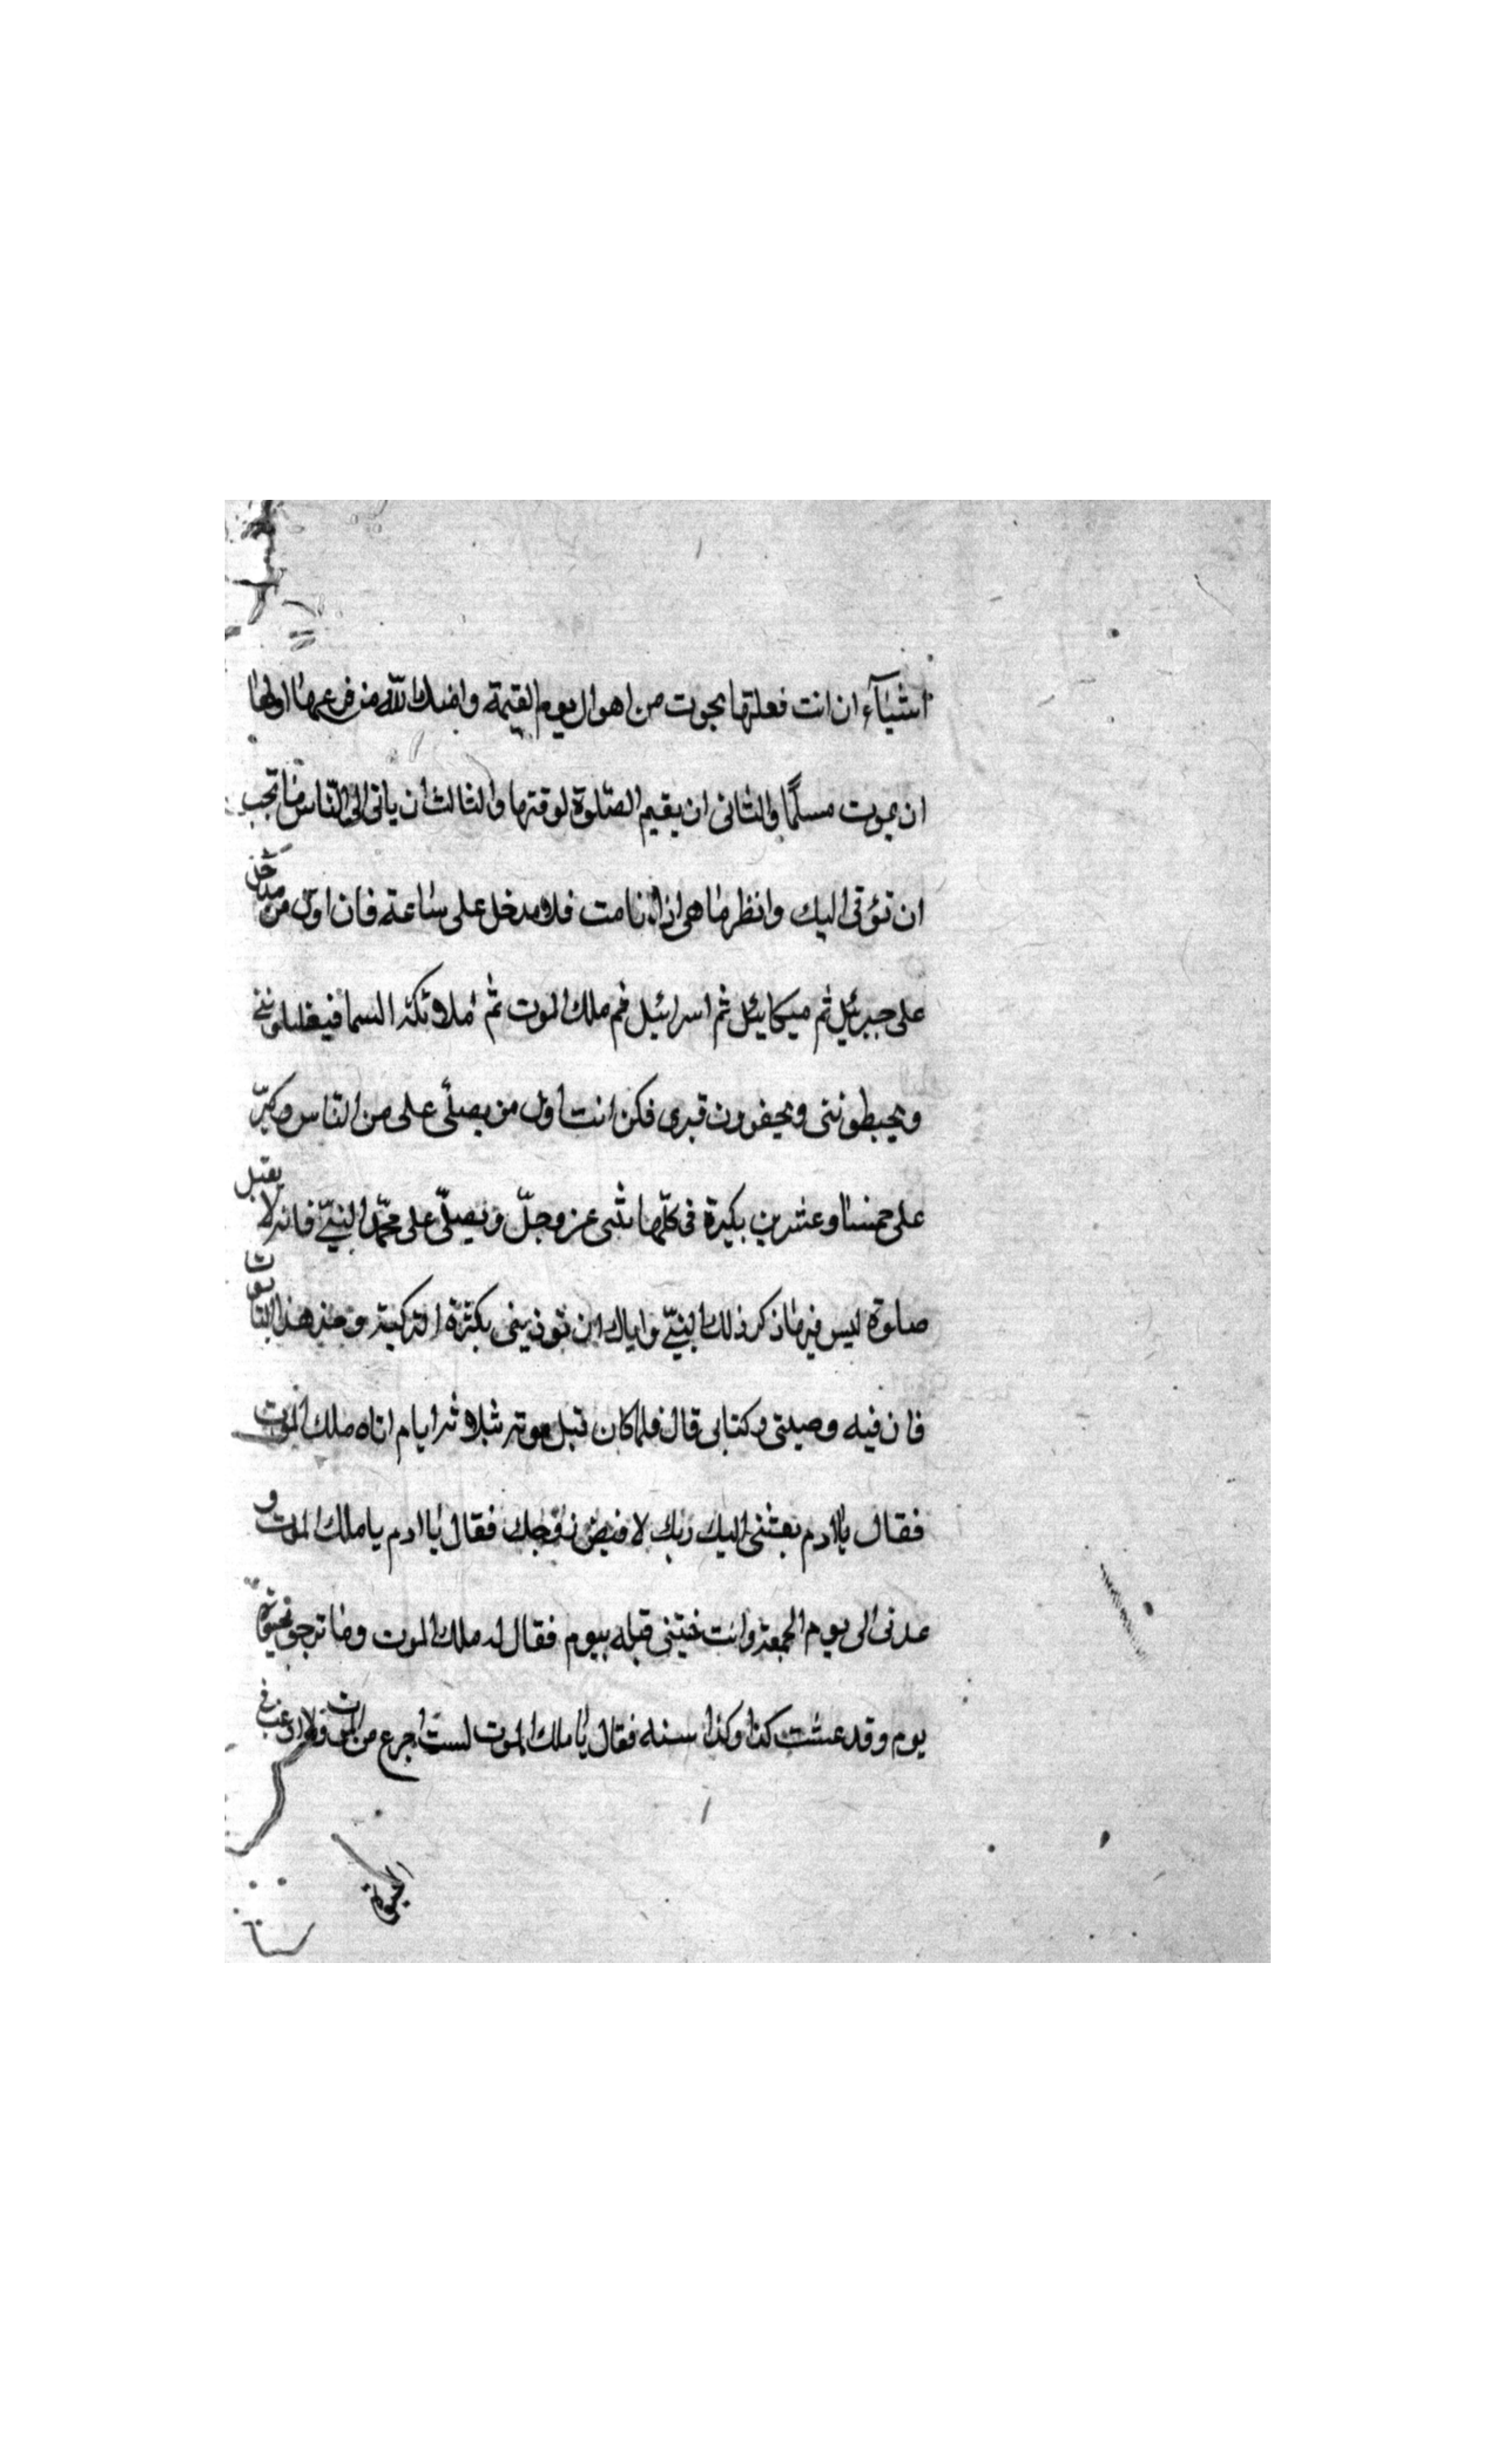 اشيآء ان انت فعلتها نجوت من اهوال يوم القيمة وامنك الله من فزعها اولها
ان يموت مسلمًا والثانى ان يقيم الصّلوة لوقتها والثالث ان ياتى الى النّاس ما تحب
ان تؤتى اليك وانظر ما هى اذا انا مت فلا تدخل على ساعة فان اول من يدخل
على جبرئيل ثم ميكائيل ثم اسرافيل ثم ملك الموت ثم ملائكة السما فيغسلوننى
ويحنطوننى ويحفرون قبرى فكن انت اول من يصلّى على من النّاس وكبّر
على خمسا وعشرين تكبيرة فى كلّها تثنى عز وجلّ وتصلّى على محمّد النبىّ فانه لا يقبل
صلوة ليس فيها ذكر ذلك النبىّ واياك ان تؤذينى بكثرة التزكية وخذ هذا التابوت
فان فيه وصيتى وكتابى قال فلما كان قبل موته بثلاثة ايام اتاه ملك الموت
فقال يا ادم بعثنى اليك ربك لاقبض روحك فقال يا ادم يا ملك الموت و
عدنى الى يوم الجمعة وانت جئتنى قبله بيوم فقال له ملك الموت وما ترجو بحيوة
يوم وقد عشت كذا وكذا سنه فقال يا ملك الموت لست اجزع من الموت ولا ارغب فى
الحيوة